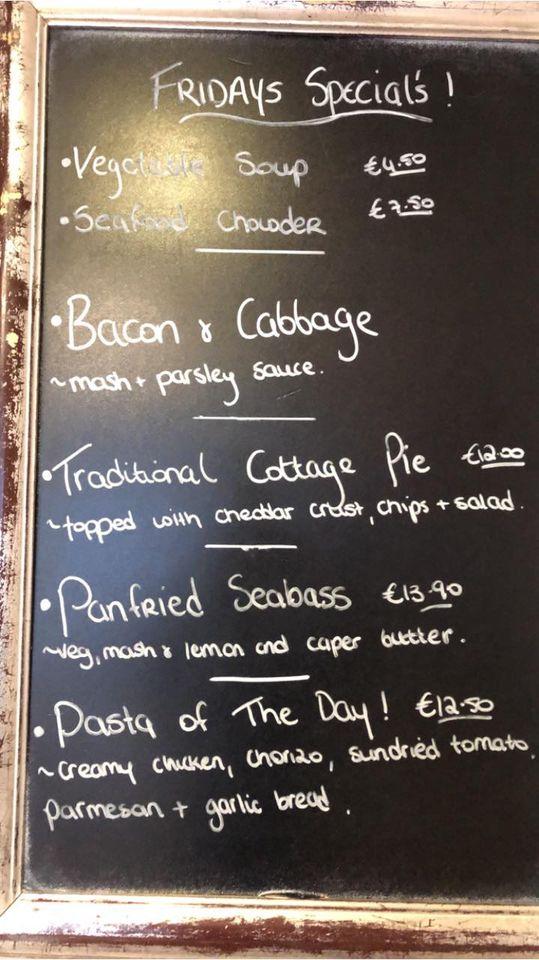 FRIDAYS Special's !
•Vegetable Soup €4.50
•Seafood Chowder €7.50
•Bacon & Cabbage
~mash + parsley sauce.
•Traditional Cottage Pie €12.00
~topped with cheddar crust, chips + salad.
•Panfried Seabass €13.90
~veg, mash & lemon and caper butter.
•Pasta of The Day! €12.50
~creamy chicken, chorizo, sundried tomato,
parmesan + garlic bread.